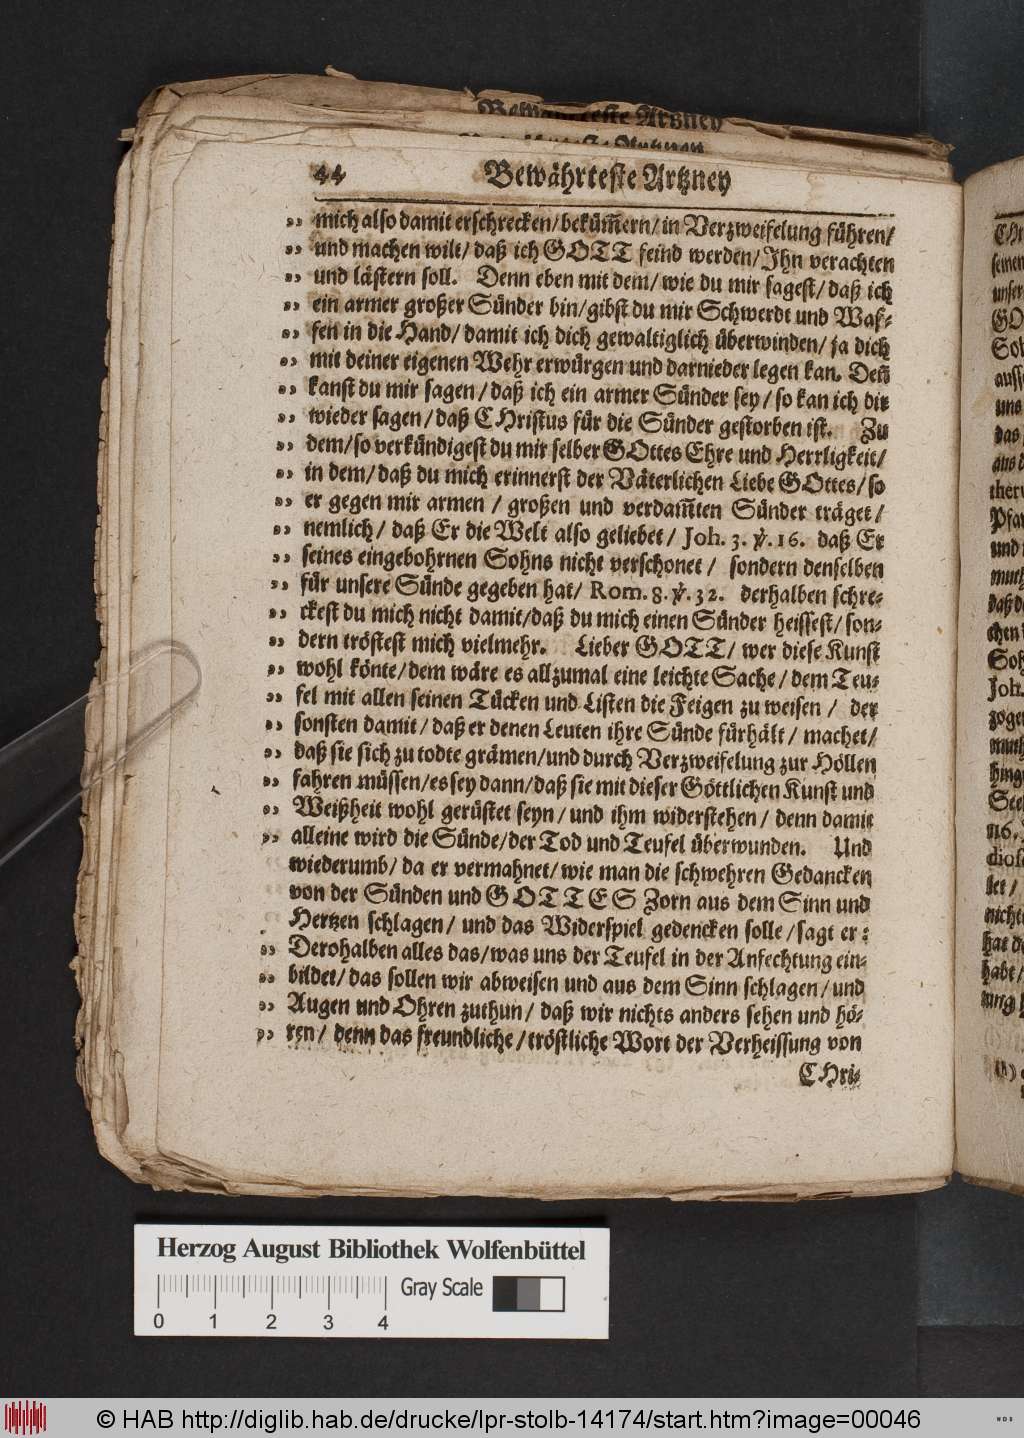 44 Bewährteste Artzney
„ mich also damit erschrecken/ beküm̃ern/ in Verzweifelung führen/
„ und machen wilt/ daß ich GOTT feind werden/ Ihn verachten
„ und lästern soll. Denn eben mit dem/ wie du mir sagest/ daß ich
„ ein armer großer Sünder bin/ gibst du mir Schwerdt und Waf-
„ fen in die Hand/ damit ich dich gewaltiglich überwinden/ ja dich
„ mit deiner eigenen Wehr erwürgen und darnieder legen kan. Deñ
„ kanst du mir sagen/ daß ich ein armer Sünder sey/ so kan ich dir
„ wieder sagen/ daß CHristus für die Sünder gestorben ist. Zu
„ dem/ so verkündigest du mir selber GOttes Ehre und Herrligkeit/
„ in dem/ daß du mich erinnerst der Väterlichen Liebe GOttes/ so
„ er gegen mir armen/ großen und verdam̃ten Sünder träget/
„ nemlich/ daß Er die Welt also geliebet/ Joh. 3. ℣. 16. daß Er
„ seines eingebohrnen Sohns nicht verschonet/ sondern denselben
„ für unsere Sünde gegeben hat/ Rom. 8. ℣. 32. derhalben schre-
„ ckest du mich nicht damit/ daß du mich einen Sünder heissest/ son-
„ dern tröstest mich vielmehr. Lieber GOTT/ wer diese Kunst
„ wohl könte/ dem wäre es allzumal eine leichte Sache/ dem Teu-
„ fel mit allen seinen Tücken und Listen die Feigen zu weisen/ der
„ sonsten damit/ daß er denen Leuten ihre Sünde fürhält/ machet/
„ daß sie sich zu todte grämen/ und durch Verzweifelung zur Höllen
„ fahren müssen/ es sey dann/ daß sie mit dieser Göttlichen Kunst und
„ Weißheit wohl gerüstet seyn/ und ihm widerstehen/ denn damit
„ alleine wird die Sünde/ der Tod und Teufel überwunden. Und
wiederumb/ da er vermahnet/ wie man die schwehren Gedancken
von der Sünden und GOTTES Zorn aus dem Sinn und
Hertzen schlagen/ und das Widerspiel gedencken solle/ sagt er:
„ Derohalben alles das/ was uns der Teufel in der Anfechtung ein-
„ bildet/ das sollen wir abweisen und aus dem Sinn schlagen/ und
„ Augen und Ohren zuthun/ daß wir nichts anders sehen und hö-
„ ren/ denn das freundliche/ tröstliche Wort der Verheissung von
CHri-
Herzog August Bibliothek Wolfenbüttel
Gray Scale
0 1 2 3 4
© HAB http://diglib.hab.de/drucke/lpr-stolb-14174/start.htm?image=00046